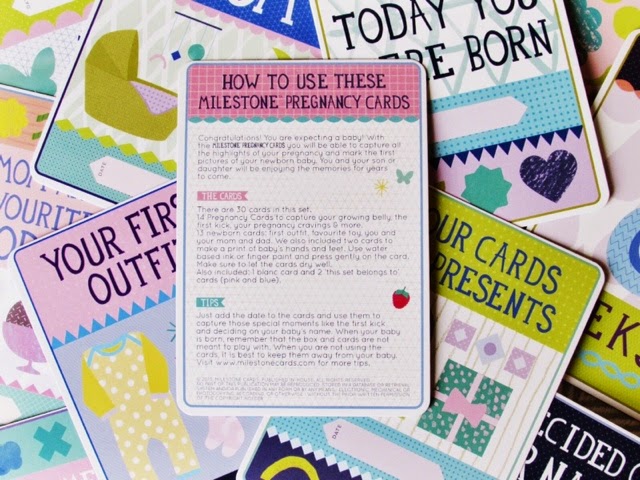 TODAY YOU
WERE BORN
HOW TO USE THESE
MILESTONE™ PREGNANCY CARDS
Congratulations! You are expecting a baby! With
the MILESTONE PREGNANCY CARDS you will be able to capture all
the highlights of your pregnancy and mark the first
pictures of your newborn baby. You and your son or
daughter will be enjoying the memories for years
to come...
THE CARDS
There are 30 cards in this set,
14 Pregnancy Cards to capture your growing belly, the
first kick, your pregnancy cravings & more.
13 newborn cards; first outfit, favourite toy, you and
your mom and dad. We also included two cards to
make a print of baby's hands and feet. Use water
based ink or finger paint and press gently on the card.
Make sure to let the cards dry well.
Also included; 1 blanc card and 2 'this set belongs to
cards (pink and blue).
TIPS
Just add the date to the cards and use them to
capture those special moments like the first kick
and deciding on your baby's name. When your baby
is born, remember that the box and cards are not
meant to play with. When you are not using the
cards, it is best to keep them away from your baby.
Visit www.milestonecards.com for more tips.
YOUR FIRST
OUTFIT
YOUR CARDS
PRESENTS
DATE
DATE
DATE
EKS
DECIDED O
R NA